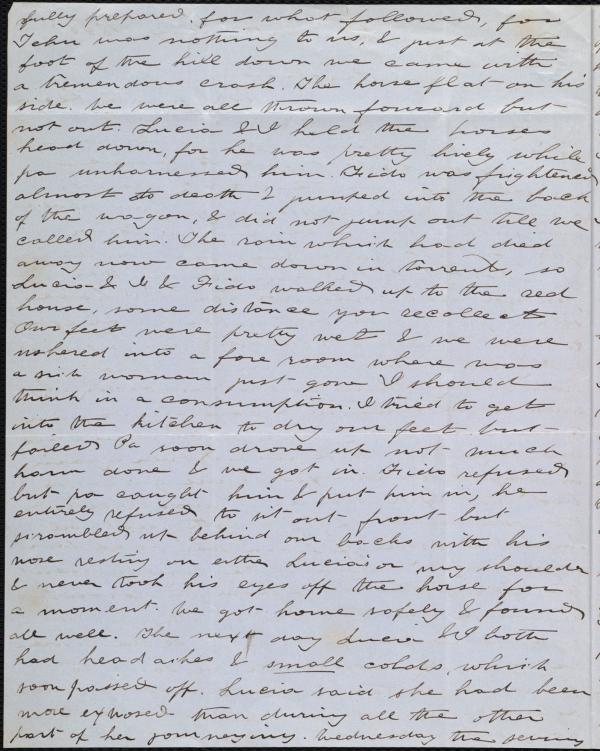 fully prepared, for what followed, for
John was nothing to us, & just at the
foot of the hill down we came with
a tremendous crash. The horse flat on his
side. We were all thrown forward but
not out. Lucia & I held the horses
head down, for he was pretty lively while
pa unharnessed him. Fido was frightened
almost to death & jumped into the back
of the wagon, & did not jump out till we
called him. The rain which had died
away now came down in torrents, so
Lucia & I & Fido walked up to the red
house, some distance you recollect
Our feet were pretty wet & we were
ushered into a fore room where was
a sick woman just gone I should
think in a consumption. I tried to get
into the kitchen to dry our feet but
failed Pa soon drove up not much
harm done & we got in. Fido refused
but pa caught him & put him in, he
entirely refused to sit out front but
scrambled up behind our backs with his
nose resting on either Lucia's or my shoulder
& never took his eyes off the horse for
a moment. We got home safely & found
all well. The next day Lucia & I both
had headaches & small colds, which
soon passed off. Lucia said she had been
more exposed than during all the other
part of her journeying. Wednesday the sewing